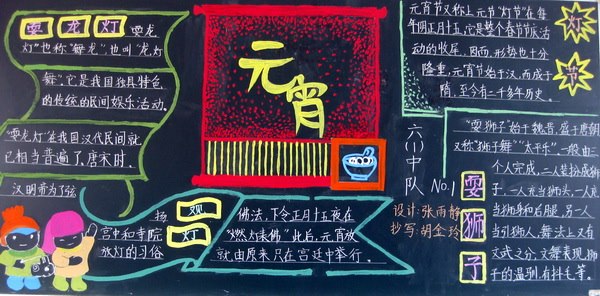 耍 龙 灯 耍龙
灯"也称"舞龙",也叫"龙灯
舞",它是我国独具特色
的传统的民间娱乐活动。
"耍龙灯"在我国汉代民间就
已相当普遍了,唐宋时,
汉明帝为了弘
扬
观
灯
宫中和寺院
放灯的习俗
佛法,下令正月十五夜在
"燃灯表佛"此后,元宵放
就由原来只在宫廷中举行。
元
宵
元宵节又称上元节"灯节"在每
年阴正月十五,它是整个春节节庆活
动的收尾。因而,形势也十分
隆重,元宵节始于汉,而成于
隋,至今有二千多年历史。
灯
节
六(1)中队 No.1
设计:张雨静
抄写:胡金玲
耍
狮
子
"耍狮子"始于魏晋,盛于唐朝
又称"狮子舞""太平乐",一般由三
个人完成,二人装扮成狮
子,一人充当狮头,一人充
当狮身和后腿,另一人
当引狮人,舞法上又有
文武之分,文舞表现,狮
子的温驯,有抖毛等。